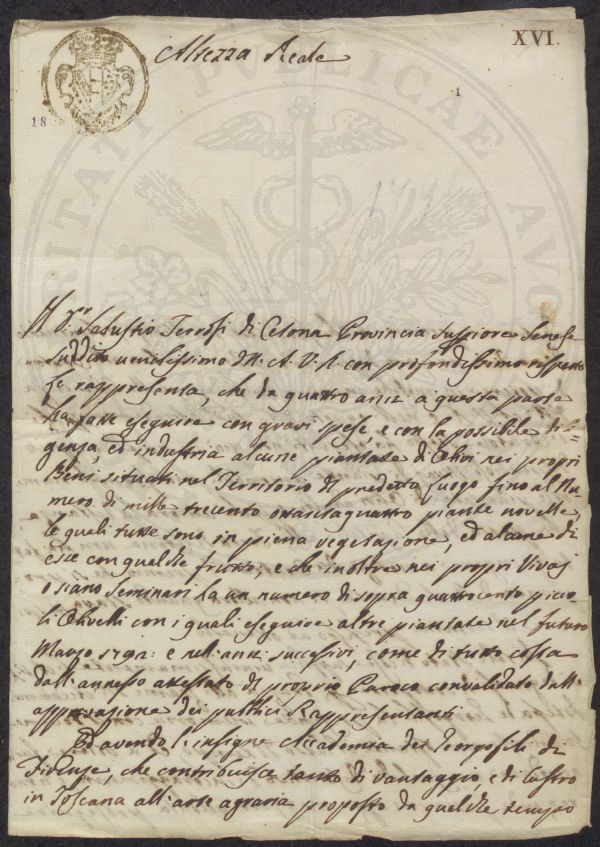 XVI.
Altezza Reale
18
1
Il Sr. Salustio Terrosi di Cetona Provincia Superiore Senese
Suddito umilissimo dell. A. V. R. con profondissimo rispetto
Le rappresenta, che da quattro anni a questa parte
ha fatte eseguire con gravi spese, e con la possibile dili=
genza, ed industria alcune piantate di Olivi nei propri
Beni situati nel Territorio di predetto Luogo fino al Nu
mero di mille trecento ottantaquattro piante novelle,
le quali tutte sono in piena vegetazione, ed alcune di
esse con qualche frutto; e che inoltre nei propri Vivaj
o siano Seminari ha un numero di sopra quattrocento picco
li Olivelli con i quali eseguire altre piantate nel futuro
Marzo 1792: e nell: anni successivi, come di tutto costa
dall'annesso attestato di proprio Paroco convalidato dall'
approvazione dei pubblici Rappresentanti
Ed avendo l'insigne Accademia dei Georgofili di
Firenze, che contribuisce tanto di vantaggio, e di lustro
in Toscana all'arte agraria proposto da qualche tempo
RITATI PVBLICAE AVG